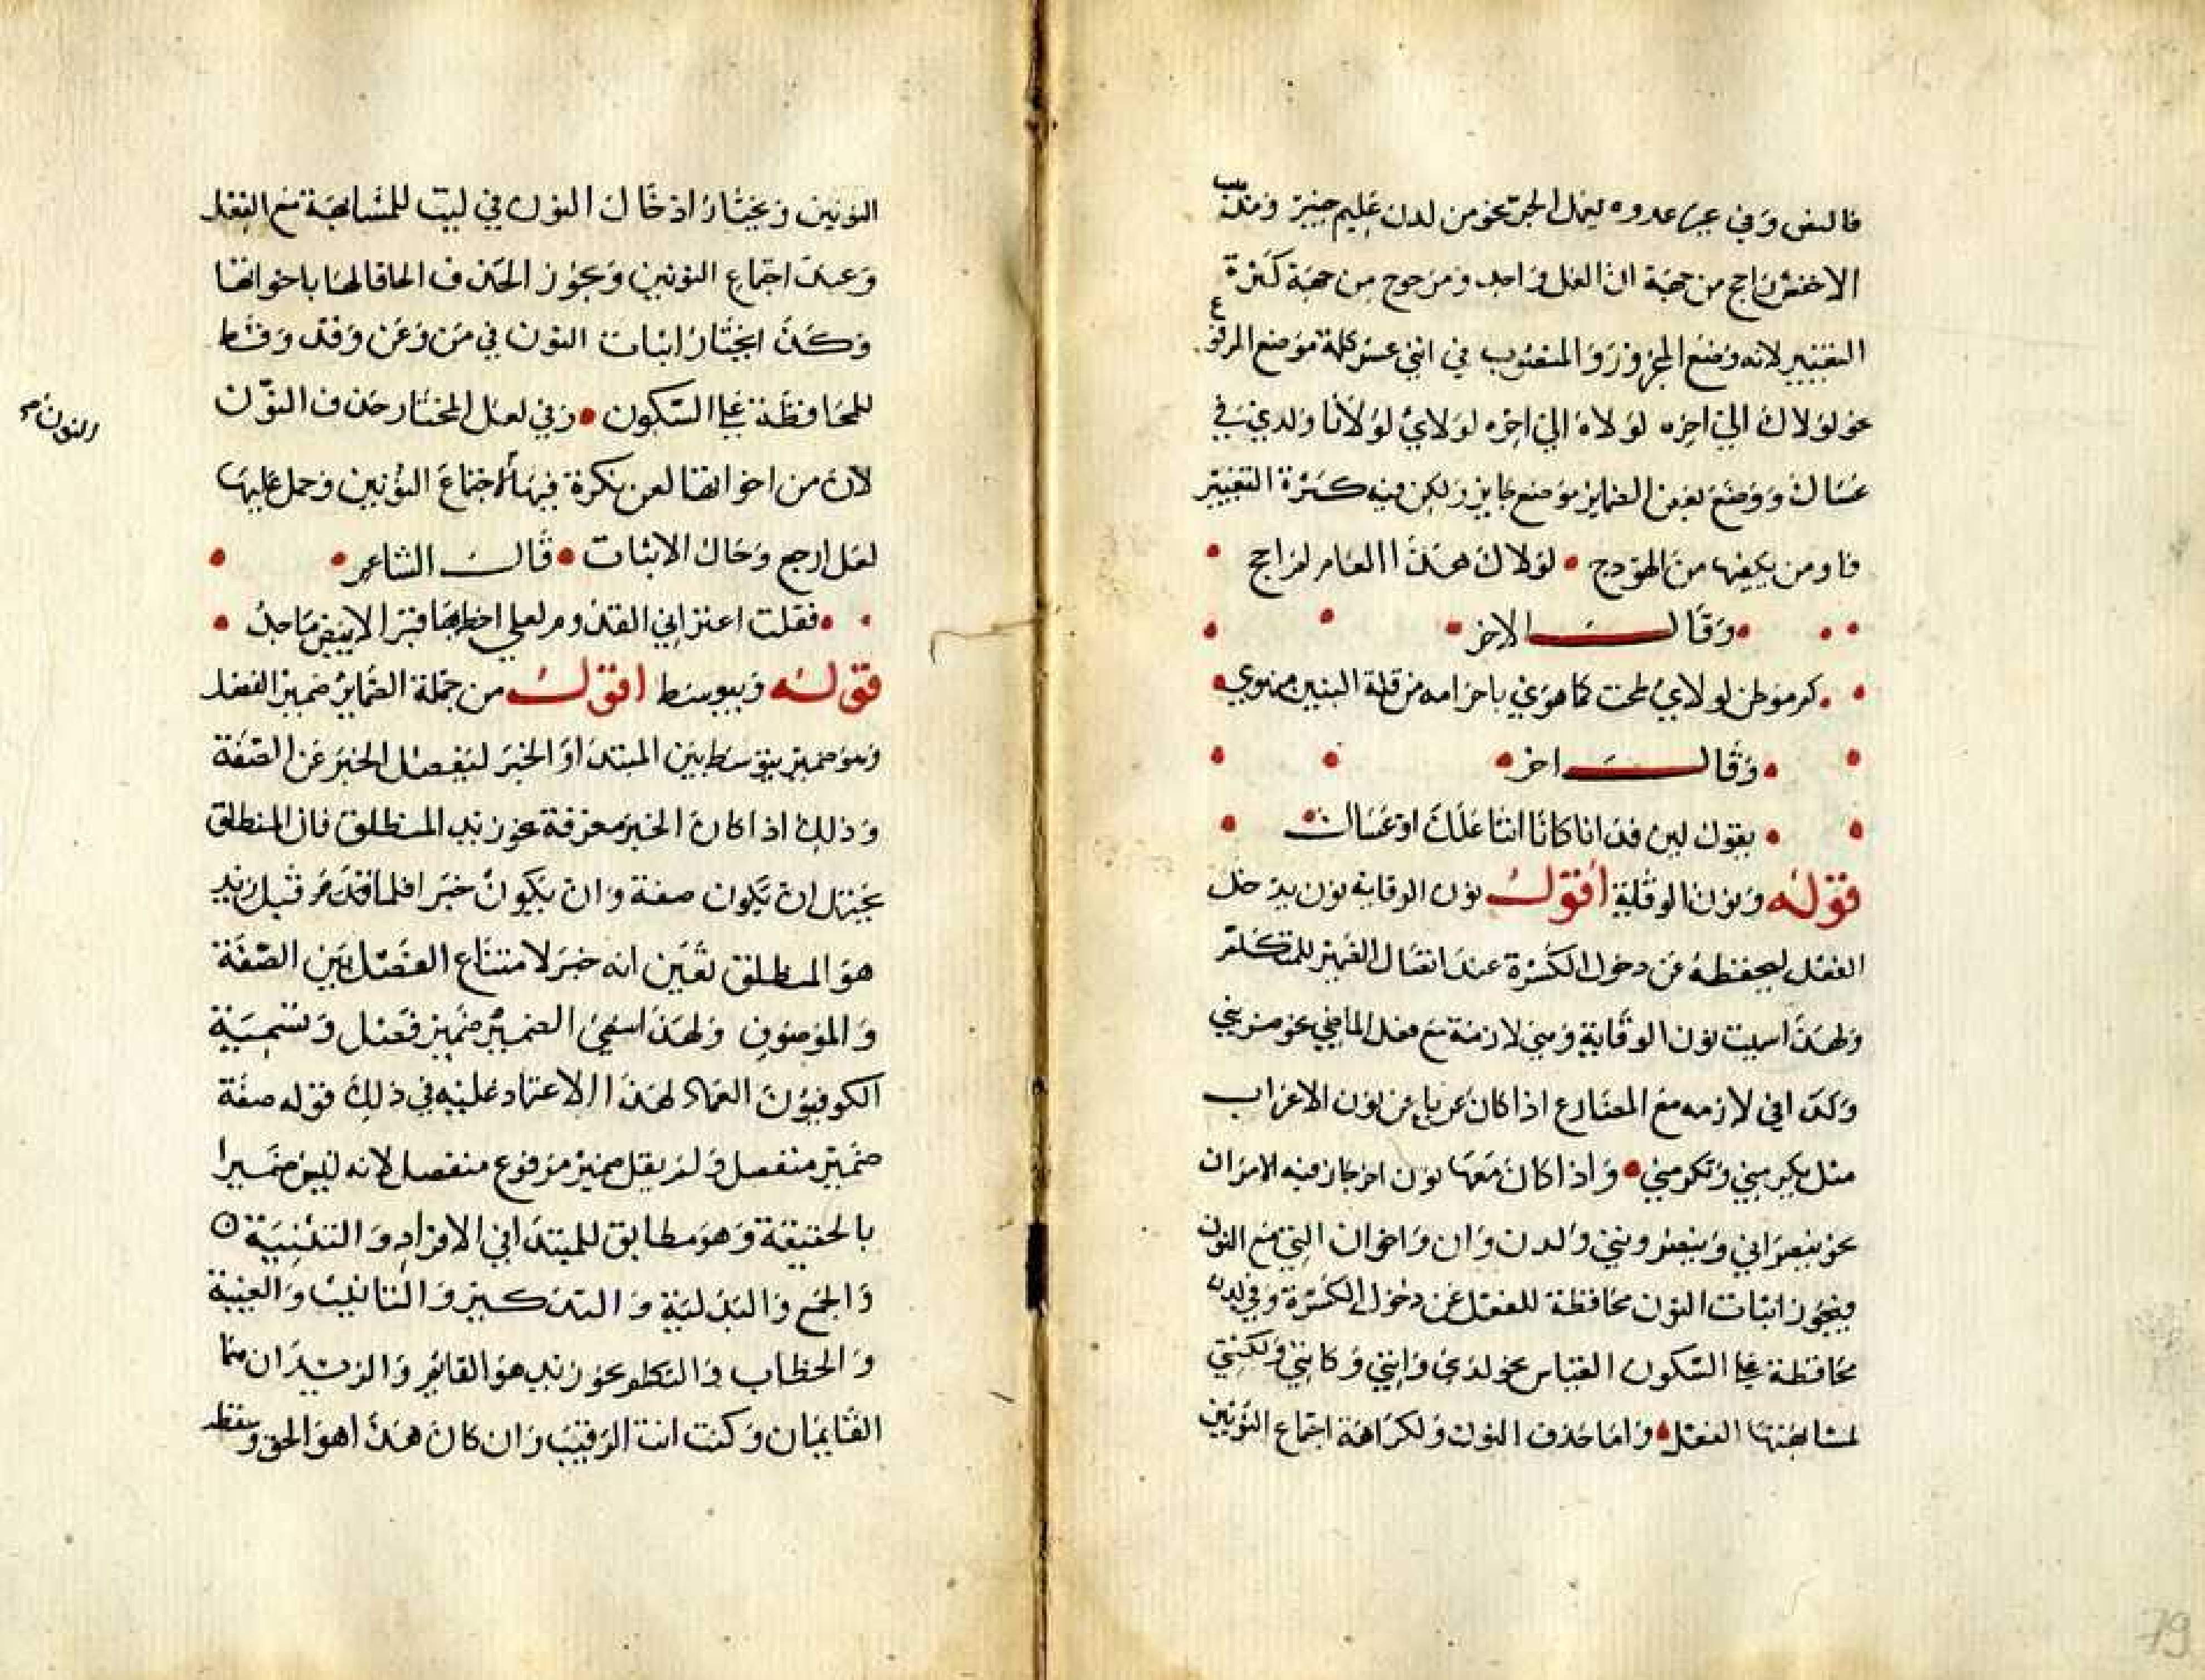 فالنفى وفى غير عدوه يعمل الجر نحو من لدن عليم خبير ومذهب
الاخفش راجح من جهة ان العمل واحد ومرجوح من جهة كثرة
التغيير لانه وضع المجرور والمنصوب في اثني عشر كلمة موضع المرفوع
نحو لولاك الي اخره لولاه الي اخره لولاي لولانا ولدي في
عساك ووضع بعض الضماير موضع جايز ولكن فيه كثرة التغيير
من الهودج لولاك هذا العام لم احج
وقال الاخر
كم موطن لولاي طحت كما هوي باجرامه من قلة منهوي
وقال اخر
يقول بنتي قد انا كانا ابتا علك او عساك
قوله ونون الوقاية اقول نون الوقاية نون يدخل
الفعل ليحفظه عن دخول الكسرة عند اتصال الضمير للمتكلم
ولهذا سميت نون الوقاية وهي لازمة مع فعل الماضي نحو ضربني
وكذا في لازمه مع المضارع اذا كان عريا عن نون الاعراب
مثل يكرمني وتكرمني واذا كان معها نون اخر جاز فيه الامران
نحو ينصراني وينصرونني والدن وان واخوان التي مع النون
فيجوز اثبات النون محافظة للفعل عن دخول الكسرة وفي لدن
محافظة علي السكون القياس نحو لدني وانني وكانني ولكنني
لمشابهتها الفعل واما حذف النون ولكراهة اجتماع النونين
النونين ويختار ادخال النون في ليت للمشابهة مع الفعل
وعدم اجتماع النونين ويجوز الحذف الحاقا لها باخواتها
وكذا يختار اثبات النون في من وعن وقد وقط
للمحافظة علي السكون وفي لعل المختار حذف النون
النون
لان من اخواتها لعن بكرة فيها اجتماع النونين وحمل عليها
لعل ارجح وحال الاثبات قال الشاعر
فقلت اعيراني القدوم لعلي اخط بها قبرا لابيض ماجد
قوله ويتوسط اقول من جملة الضماير ضمير الفصل
وهو ضمير يتوسط بين المبتدا والخبر ليفصل الخبر عن الصفة
وذلك اذا كان الخبر معرفة نحو زيد المنطلق فان المنطلق
يحتمل ان يكون صفة وان يكون خبرا فلما قدم قبل زيد
هو المنطلق تعين انه خبر لامتناع الفصل بين الصفة
والموصوف ولهذا سمي الضمير ضمير فصل وتسمية
الكوفيون العماد لهذا الاعتماد عليه في ذلك قوله صفة
ضمير منفصل ولم يقل ضمير مرفوع منفصل لانه ليس ضميرا
بالحقيقة وهو مطابق للمبتدا في الافراد والتثنية
والجمع والتذكير والتانيث والغيبة
والخطاب والتكلم نحو زيد هو القايم والزيدان هما
القايمان وكنت انت الرقيب وان كان هذا هو الحق وسقط
79